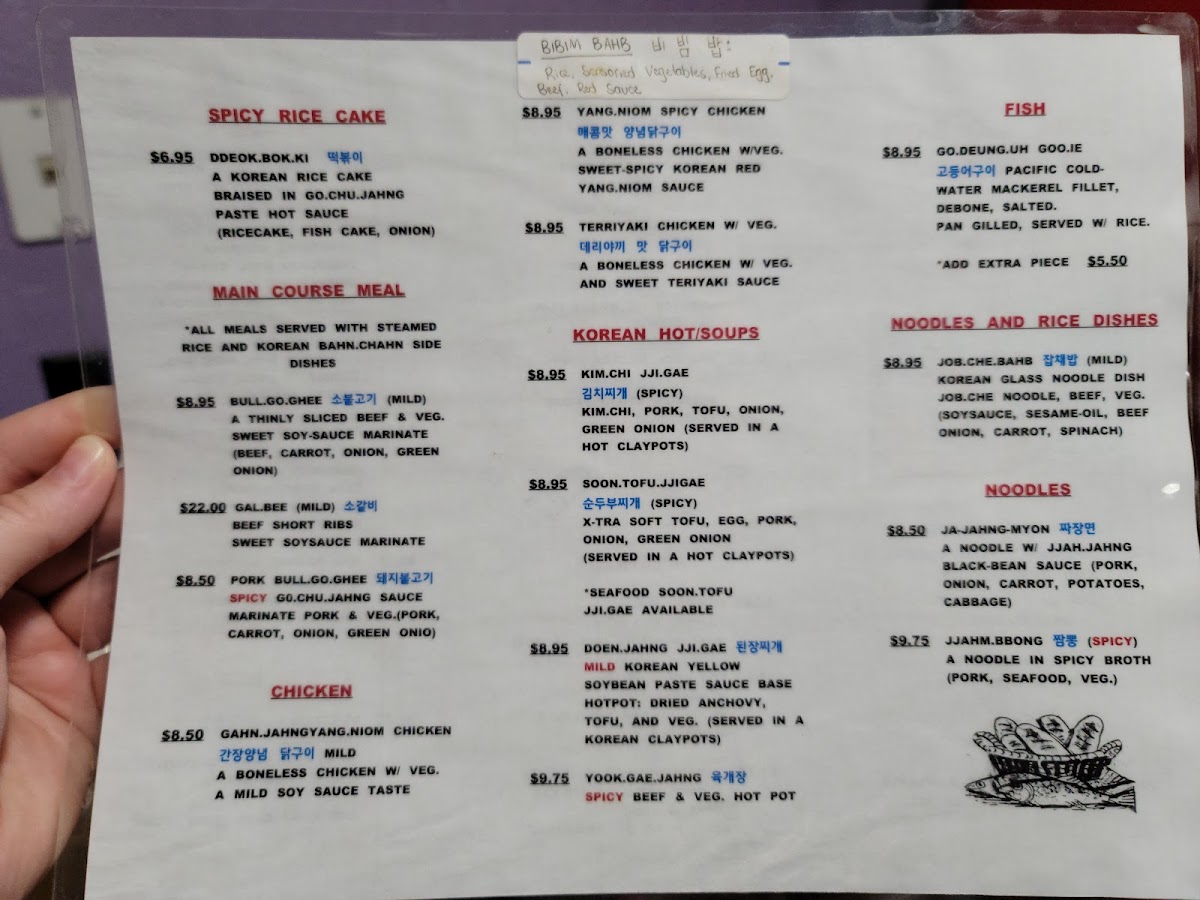 BIBIM BAHB 비 빔 밥:
Rice, Vegetables, Fried Egg,
Beef, Red Sauce
SPICY RICE CAKE
$6.95 DDEOK.BOK.KI 떡볶이
A KOREAN RICE CAKE
BRAISED IN GO.CHU.JAHNG
PASTE HOT SAUCE
(RICECAKE, FISH CAKE, ONION)
MAIN COURSE MEAL
*ALL MEALS SERVED WITH STEAMED
RICE AND KOREAN BAHN.CHAHN SIDE
DISHES
$8.95 BULL.GO.GHEE 소불고기 (MILD)
A THINLY SLICED BEEF & VEG.
SWEET SOY-SAUCE MARINATE
(BEEF, CARROT, ONION, GREEN
ONION)
$22.00 GAL.BEE (MILD) 소갈비
BEEF SHORT RIBS
SWEET SOYSAUCE MARINATE
$8.50 PORK BULL.GO.GHEE 돼지불고기
SPICY GO.CHU.JAHNG SAUCE
MARINATE PORK & VEG.(PORK,
CARROT, ONION, GREEN ONIO)
CHICKEN
$8.50 GAHN.JAHNGYANG.NIOM CHICKEN
간장양념 닭구이 MILD
A BONELESS CHICKEN W/ VEG.
A MILD SOY SAUCE TASTE
$8.95 YANG.NIOM SPICY CHICKEN
매콤맛 양념닭구이
A BONELESS CHICKEN W/VEG.
SWEET-SPICY KOREAN RED
YANG.NIOM SAUCE
$8.95 TERRIYAKI CHICKEN W/ VEG.
데리야끼 맛 닭구이
A BONELESS CHICKEN W/ VEG.
AND SWEET TERIYAKI SAUCE
KOREAN HOT/SOUPS
$8.95 KIM.CHI JJI.GAE
김치찌개 (SPICY)
KIM.CHI, PORK, TOFU, ONION,
GREEN ONION (SERVED IN A
HOT CLAYPOTS)
$8.95 SOON.TOFU.JJIGAE
순두부찌개 (SPICY)
X-TRA SOFT TOFU, EGG, PORK,
ONION, GREEN ONION
(SERVED IN A HOT CLAYPOTS)
*SEAFOOD SOON.TOFU
JJI.GAE AVAILABLE
$8.95 DOEN.JAHNG JJI.GAE 된장찌개
MILD KOREAN YELLOW
SOYBEAN PASTE SAUCE BASE
HOTPOT: DRIED ANCHOVY,
TOFU, AND VEG. (SERVED IN A
KOREAN CLAYPOTS)
$9.75 YOOK.GAE.JAHNG 육개장
SPICY BEEF & VEG. HOT POT
FISH
$8.95 GO.DEUNG.UH GOO.IE
고등어구이 PACIFIC COLD-
WATER MACKEREL FILLET,
DEBONE, SALTED.
PAN GILLED, SERVED W/ RICE.
*ADD EXTRA PIECE $5.50
NOODLES AND RICE DISHES
$8.95 JOB.CHE.BAHB 잡채밥 (MILD)
KOREAN GLASS NOODLE DISH
JOB.CHE NOODLE, BEEF, VEG.
(SOYSAUCE, SESAME-OIL, BEEF
ONION, CARROT, SPINACH)
NOODLES
$8.50 JA-JAHNG-MYON 짜장면
A NOODLE W/ JJAH.JAHNG
BLACK-BEAN SAUCE (PORK,
ONION, CARROT, POTATOES,
CABBAGE)
$9.75 JJAHM.BBONG 짬뽕 (SPICY)
A NOODLE IN SPICY BROTH
(PORK, SEAFOOD, VEG.)